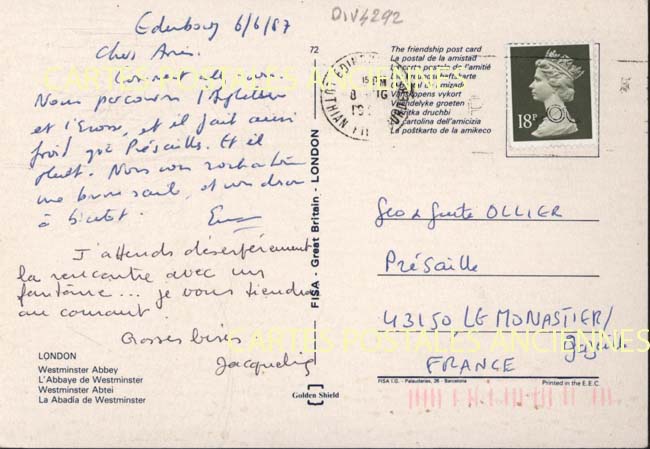 DIV4292
Edenbourg 6/6/87
Chers Amis.
Nous parcourons l'Angleterre
et l'Ecosse, et il fait aussi
froid qu'à Présailles. Et il
pleut. Nous vous souhaitons
une bonne santé, et vous disons
à bientôt.
J'attends désespérément
la rencontre avec un
fantôme... je vous tiendrai
au courant !
Grosses bises
Jacqueline
LONDON
Westminster Abbey
L'Abbaye de Westminster
Westminster Abtei
La Abadia de Westminster
72
FISA - Great Britain - LONDON
Golden Shield
The friendship post card
La postal de la amistad
La carte postale de l'amitié
La cartolina dell'amicizia
La poŝtkarto de la amikeco
18P
Geo & Guite OLLIER
Présailles
43150 LE MONASTIER/
Gazeille
FRANCE
FISA I.G. - Palaudarias, 26 - Barcelona
Printed in the E.E.C.
CARTES POSTALES ANCIENNES
CARTES POSTALES ANCIENNES